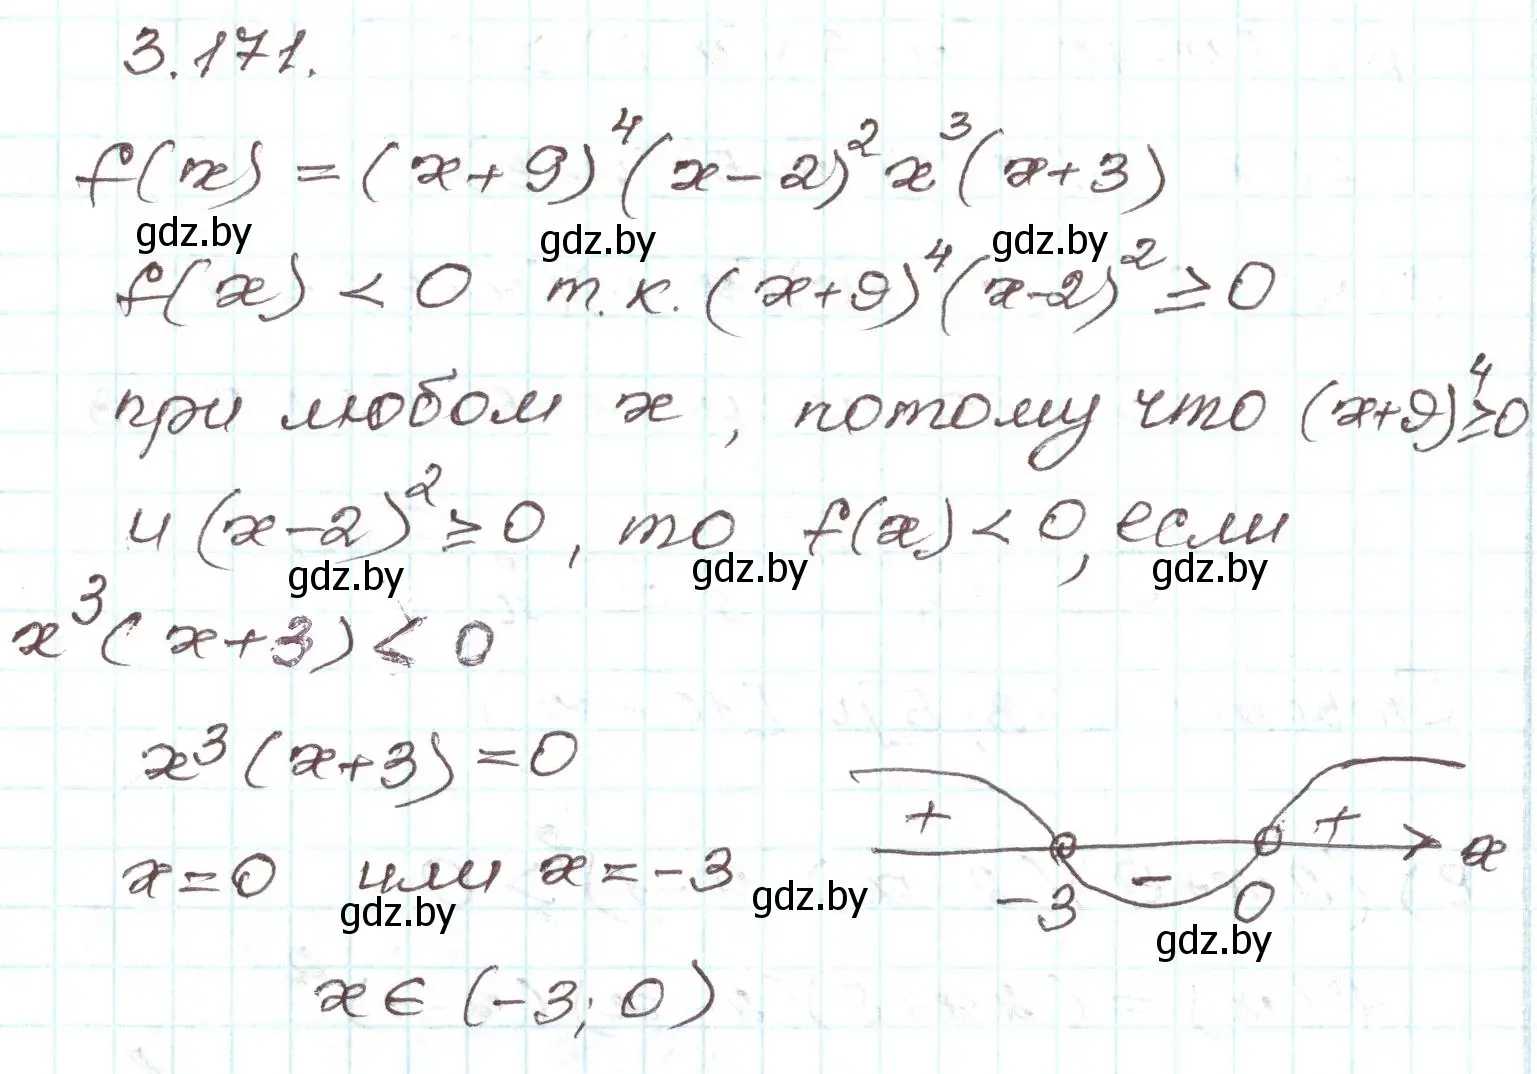 3.171.
f(x) = (x+9)⁴(x-2)²x³(x+3)
gdz.by gdz.by gdz.by
f(x) < 0 т.к. (x+9)⁴(x-2)² ≥ 0
при любом x, потому что (x+9)⁴≥0
и (x-2)² ≥ 0, то f(x) < 0, если
gdz.by gdz.by gdz.by
x³(x+3) < 0
x³(x+3) = 0
+ + x
x=0 или x=-3
-3 - 0
gdz.by gdz.by gdz.by
x∈(-3; 0)